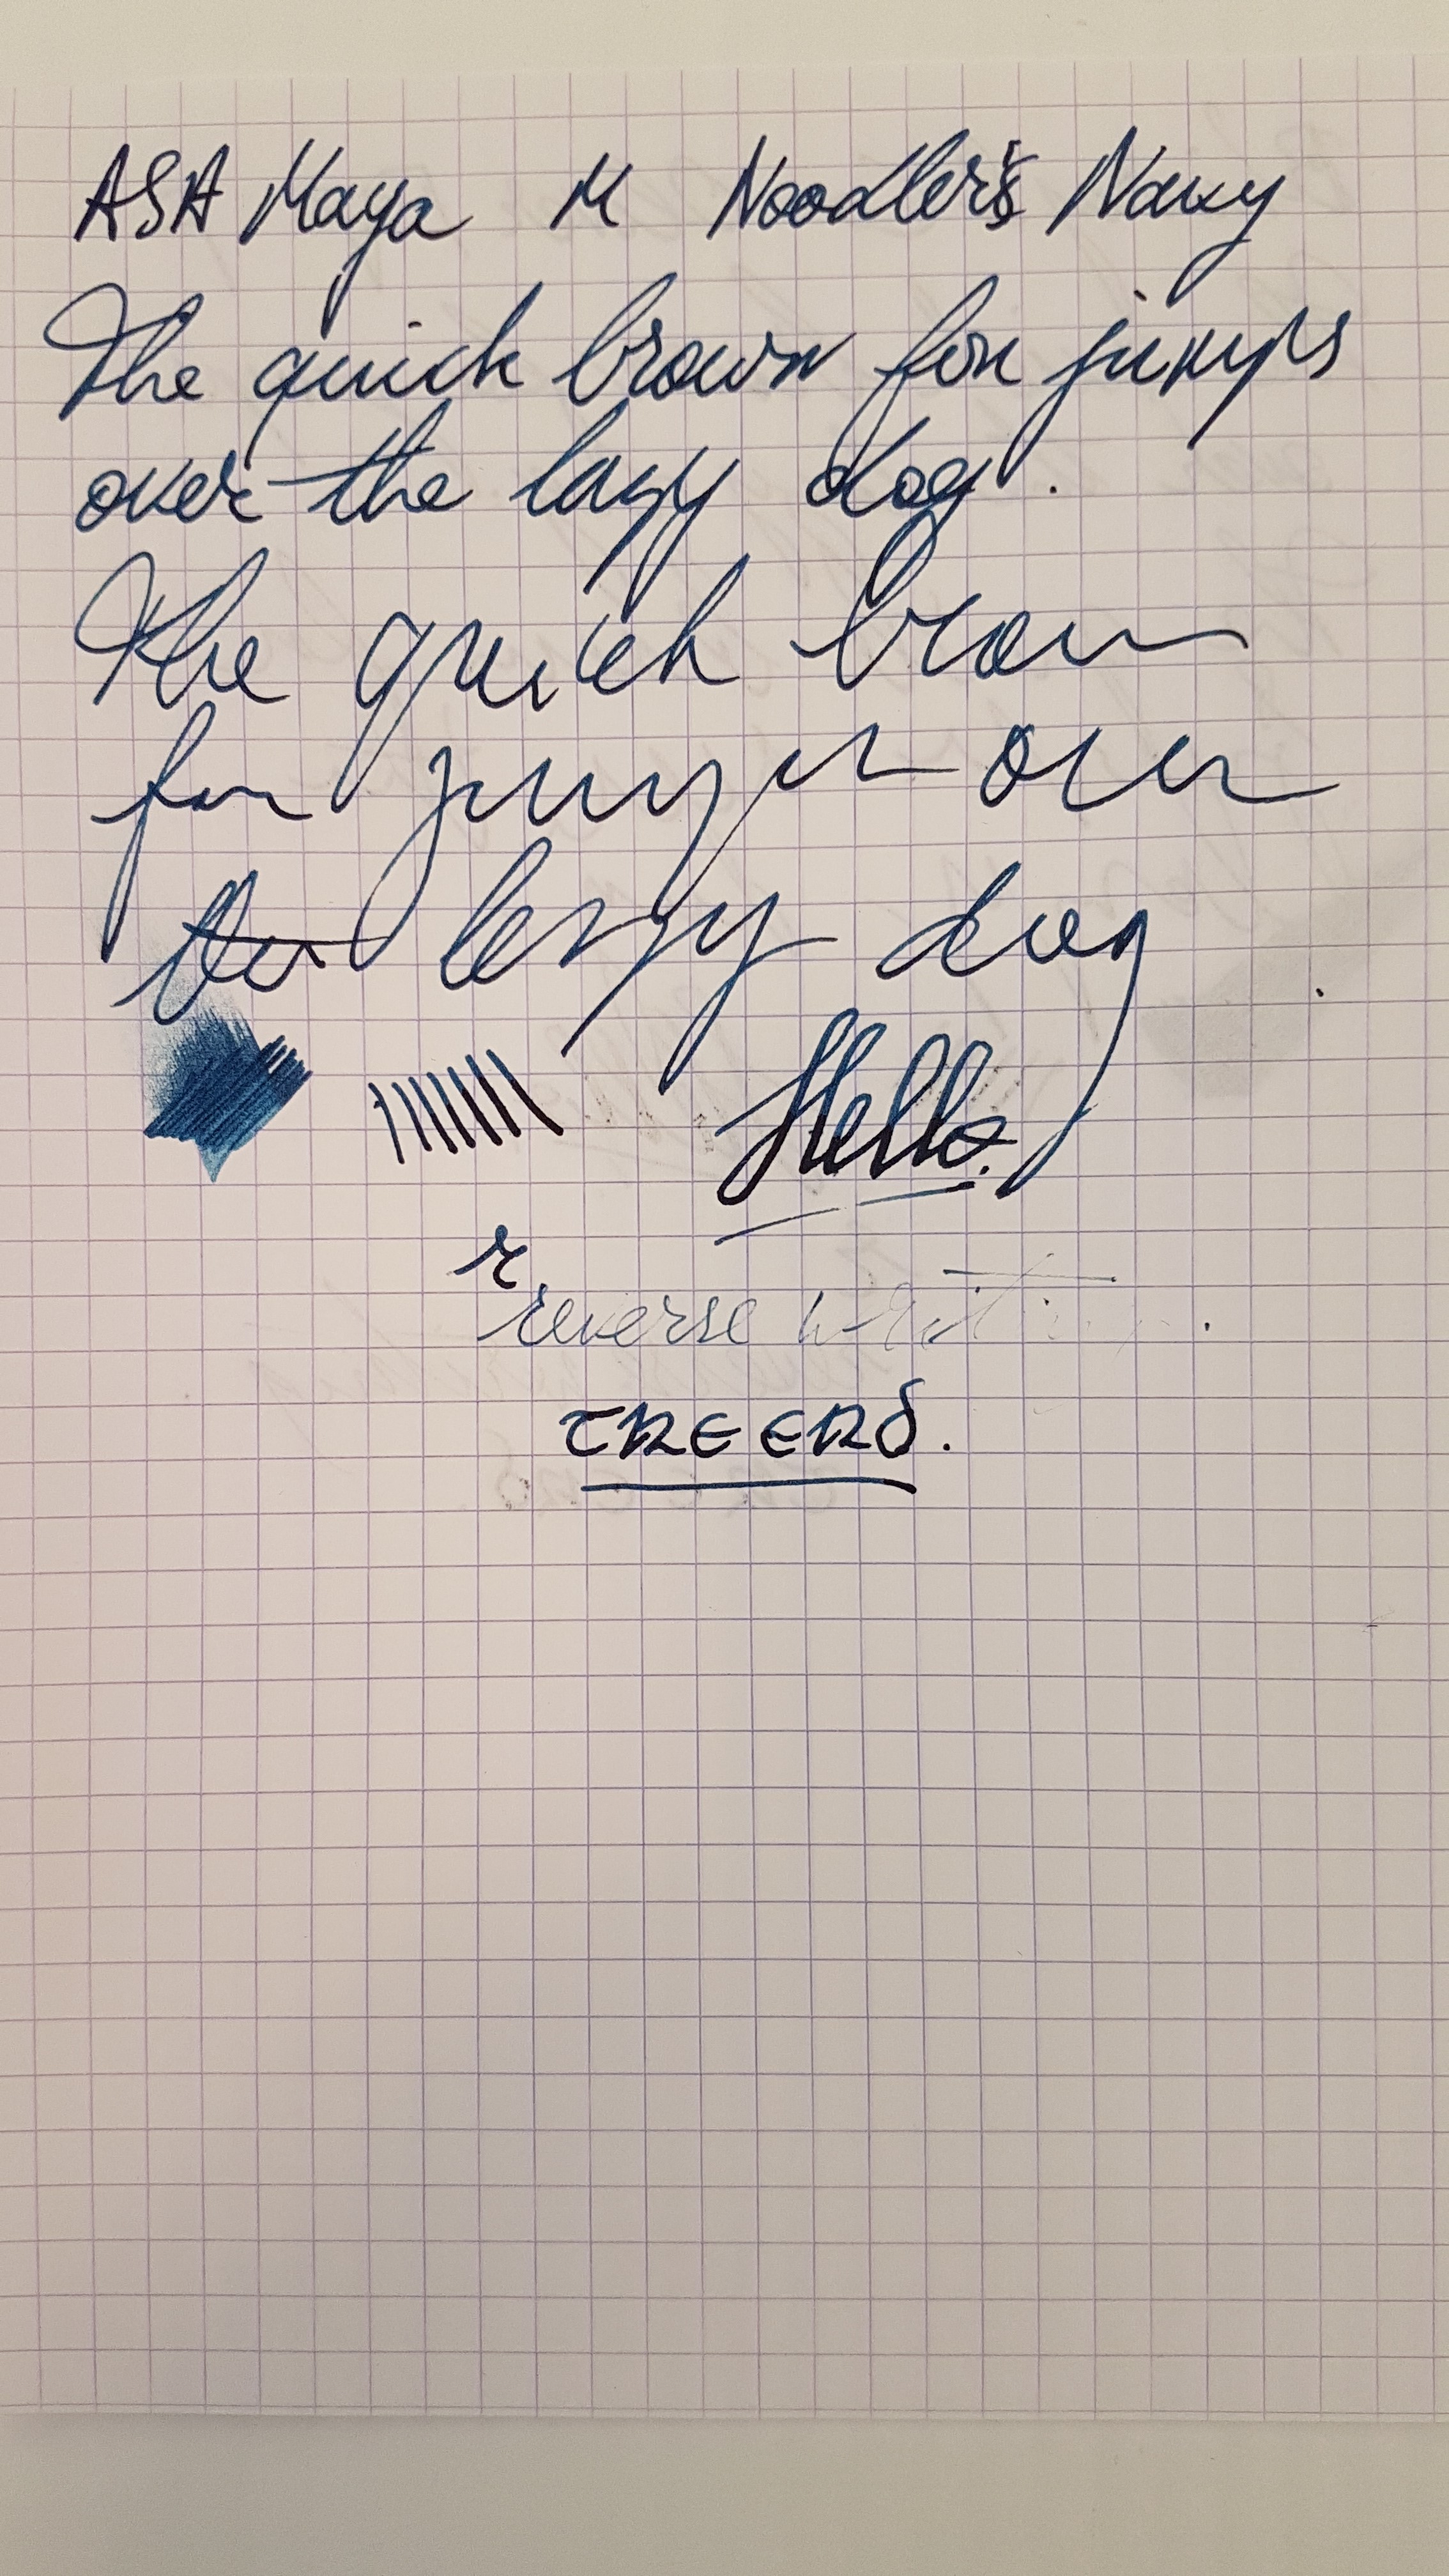 ASA Maya M Noodler's Navy
The quick brown fox jumps
over the lazy dog.
The quick brown
fox jumps over
the lazy dog
Hello.
r
reverse writing.
CHEERS.